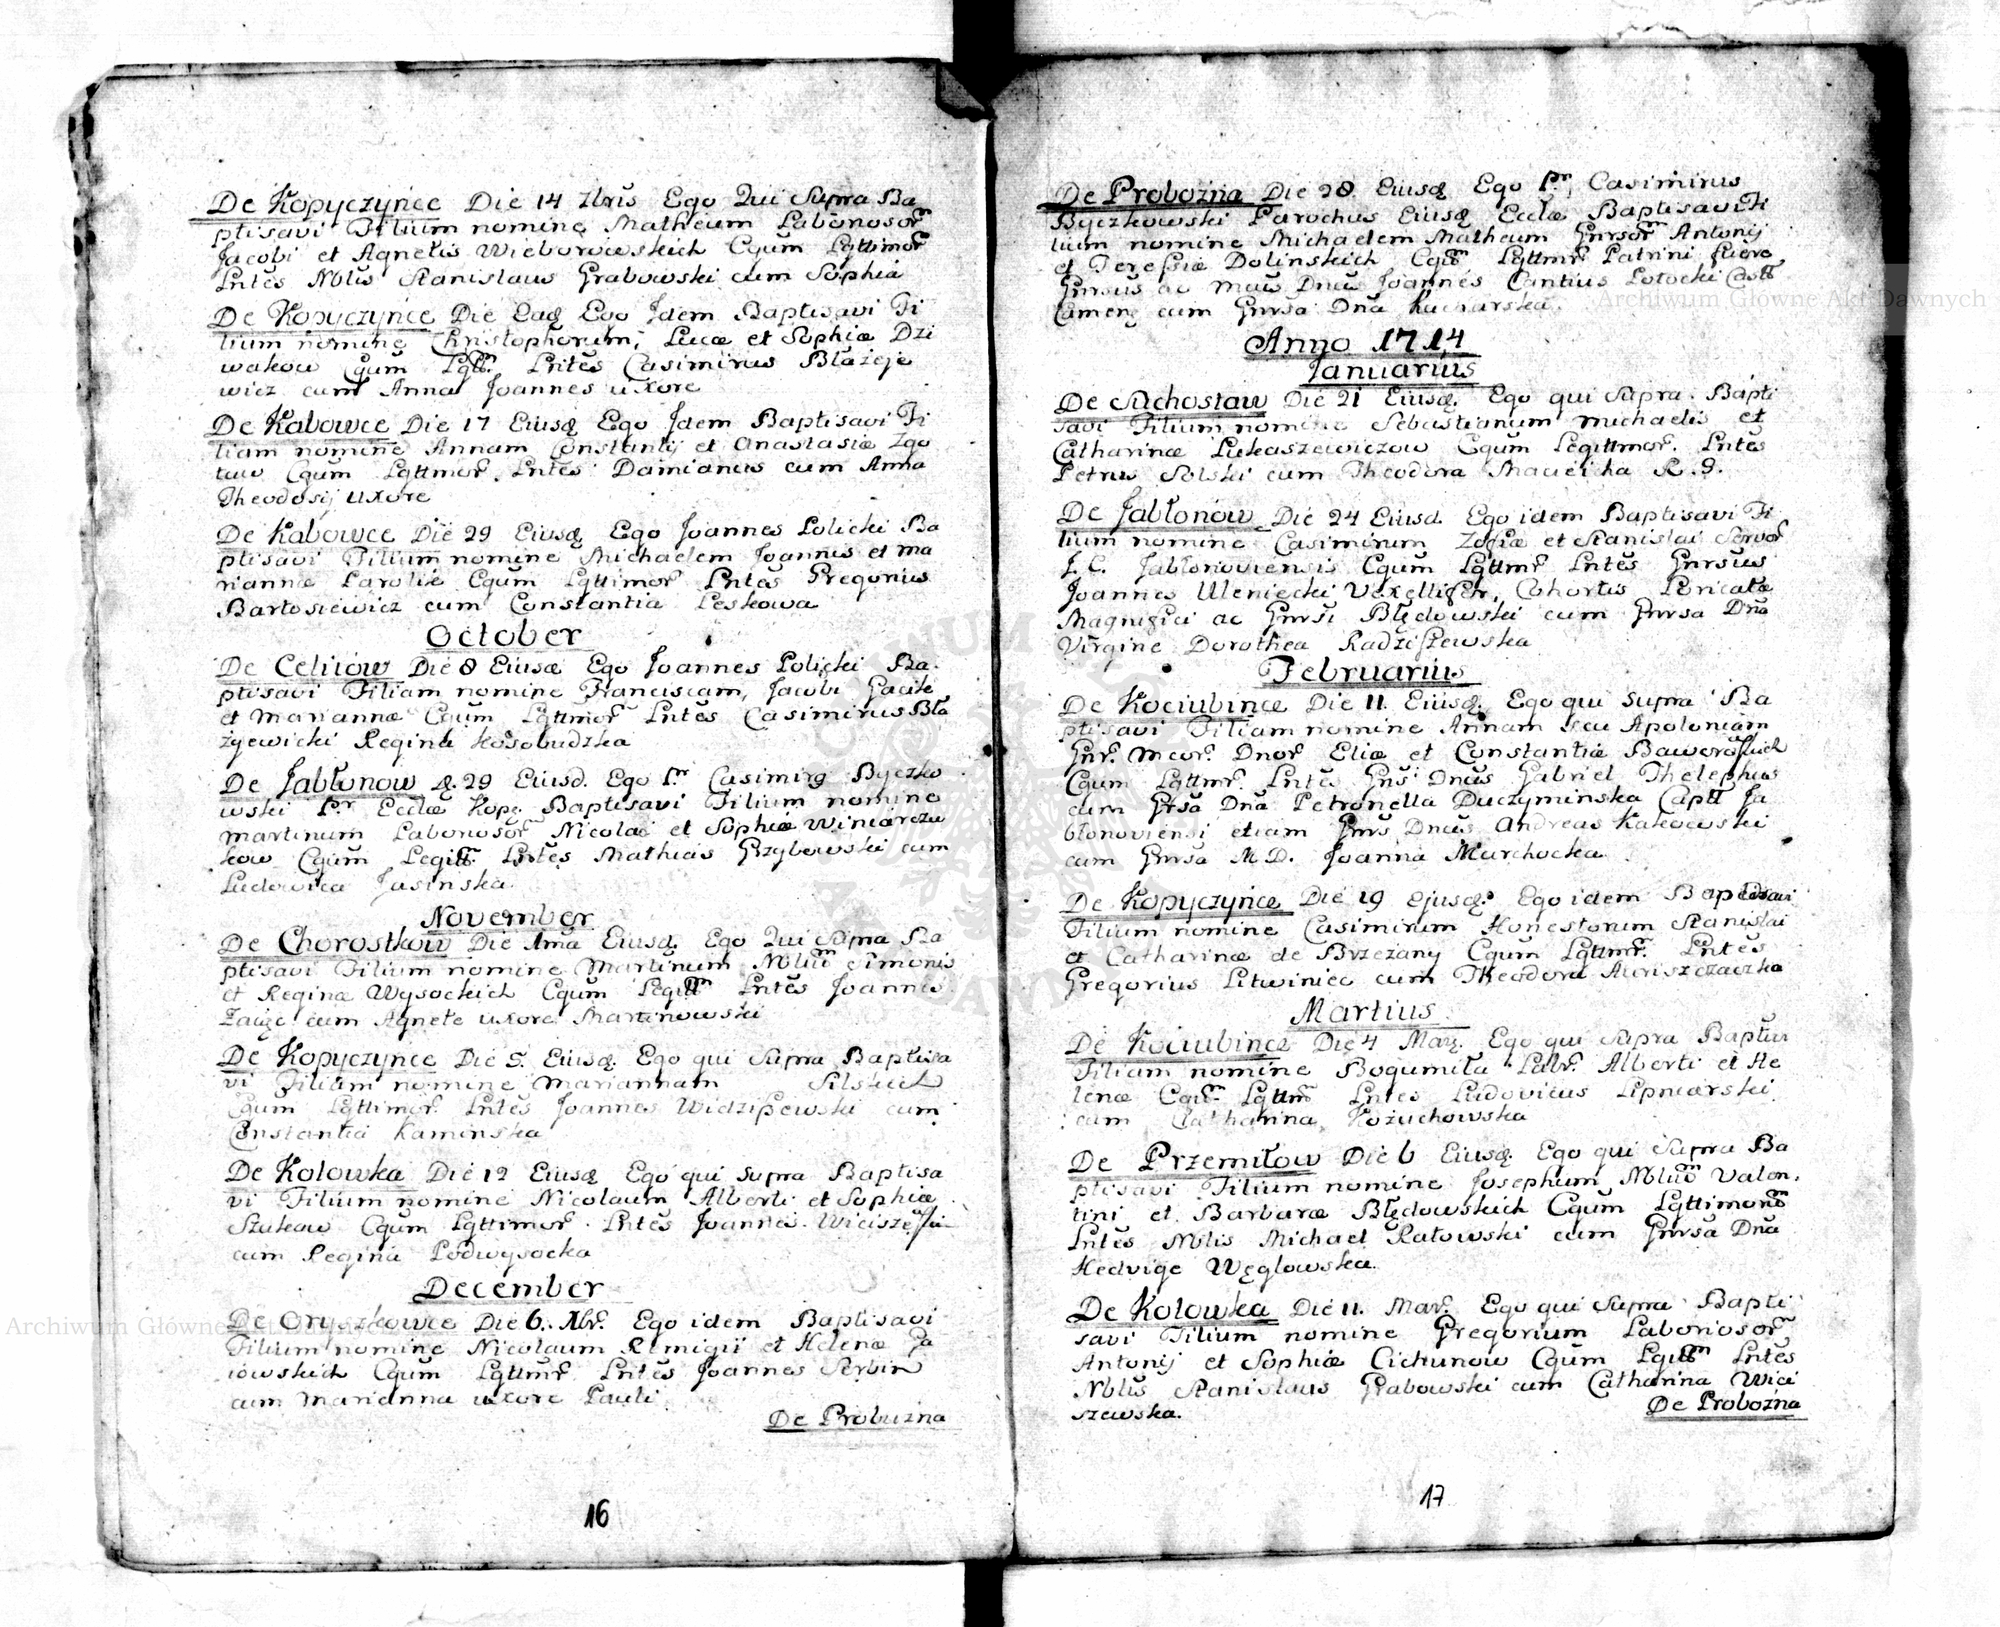 De Kopyczynce Die 14 7bris Ego Qui Supra Ba
ptisavi Filium nomine Matheum Laborosor̃
Jacobi et Agnetis Wieborowskich Cgum Lgttimor̃
Lntĕs Nblis Stanislaus Grabowski cum Sophia
De Kopyczynce Die Eadꝫ Ego Jdem Baptisavi Fi
lium nomine Christophorum, Lucæ et Sophiæ Dzi
wakow Cgum Lgtt̃. Lntĕs Casimirus Błażeje
wicz cum Anna Joannes uxore
De Kabowce Die 17 Eiusdꝫ Ego Jdem Baptisavi Fi
liam nomine Annam Constantij et Anastasiæ Zgo
Cgum Lgttmor̃. Lntĕs Damianus cum Anna
Theodosij uxore
De Kabowce Die 29 Eiusdꝫ Ego Joannes Policki Ba
ptisavi Filium nomine Michaelem Joannis et Ma
riannæ Cgum Lgttimor̃ Lntĕs Gregorius
Bartosiewicz cum Constantia Leskowa
October
De Celiiow Die 8 Eiusdꝫ Ego Joannes Policki Ba
ptisavi Filiam nomine Franciscam, Jacobi
et Mariannæ Cgum Lgttimor̃ Lntĕs Casimirus Bła
żyewicki Regina Kosobudzka
De Jabłonow d. 29 Eiusd. Ego Pr Casimirꝯ Byczko
wski Pr Ecclæ Kopꝫ Baptisavi Filium nomine
Martinum Laborosor̃ Nicolai et Sophiæ Winiarczu
kow Cgum Legitt̃. Lntĕs Mathias Grzybowski cum
Ludovica Jasinska
November
De Chorostkow Die 1ma Eiusd. Ego Qui Supra Ba
ptisavi Filium nomine Martinum Nbliũ Simonis
et Reginæ Wysockich Cgum Legitt̃ Lntĕs Joannes
cum Agnete uxore Martinowski
De Kopyczynce Die 5. Eiusdꝫ. Ego qui Supra Baptisa
vi Filiam nomine Mariannam Silskich
Cgum Lgttimor̃. Lntĕs Joannes Widziszewski cum
Constantia Kaminska
De Kolowka Die 12 Eiusdꝫ Ego qui Supra Baptisa
vi Filium nomine Nicolaum Alberti et Sophiæ
Szukow Cgum Lgttimor̃. Lntĕs Joannes Wiciszewski
cum Regina Podwysocka
December
De Oryszkowce Die 6. Xbr̃. Ego idem Baptisavi
Filium nomine Nicolaum Remigii et Helenæ Ga
iowskich Cgum Lgttmr̃ Lntĕs Joannes Serbin
cum Marianna uxore Pauli
De Probuzna
16
De Probozna Die 28 Eiusdꝫ Ego Pr, Casimirus
Byczkowski Parochus Eiusdꝫ Ecclæ Baptisavi Fi
lium nomine Michaelem Matheum Gnrsor̃ Antonij
et Teressiæ Dolinskich Cgũ Lgttmr̃ Patrini fuere
Gnrsus ac Mcus Dnus Joannes Cantius Potocki Castt̃
Camenꝫ cum Gnrsa Dña Kucharska.
Anno 1714
Januarius
De Suchostaw Die 21 Eiusdꝫ. Ego qui Supra Bapti
savi Filium nomine Sebastianum Michaelis et
Catharinæ Lukaszewiczow Cgum Legittmor̃. Lntĕs
Petrus Solski cum Theodora Macieika R. S.
De Jabłonow Die 24 Eiusd. Ego idem Baptisavi Fi
lium nomine Casimirum Zofiæ et Stanislai Servor̃
J. C. Jabłonoviensis Cgum Lgttmr̃ Lntĕs Gnrsus
Joannes Uleniecki Vexellifer, Cohortis Loricatæ
Magnifici ac Gnrsi Błędowski cum Gnrsa Dña
Virgine Dorothea Radziszewska
Februarius
De Kociubince Die 11. Eiusdꝫ. Ego qui Supra Ba
ptisavi Filiam nomine Annam seu Apoloniam
Gnr̃. Mcor̃. Dnor̃ Eliæ et Constantiæ Baworowskich
Cgum Lgttmr̃. Lntĕs Gnš Dnus Gabriel Thelephus
cum Gnrsa Dña Petronella Duczyminska Captt̃ Ja
błonoviensi etiam Gnrs Dnus Andreas Kakowski
cum Gnrsa M. D. Joanna Marchocka
De Kopyczynce Die 19 ejusdꝫ. Ego idem Baptisavi
Filium nomine Casimirum Honestorum Stanislai
et Catharinæ de Brzezany Cgum Lgttmr̃. Lntĕs
Gregorius Litwiniec cum Theodora
Martius
De Kociubince Die 4 Marꝫ. Ego qui Supra Baptisavi
Filiam nomine Bogumiła Labr̃. Alberti et He
lenæ Cgũ Lgttm̃ Lntĕs Ludovicus Lipniarski
cum Catharina Kożuchowska
De Przemiłow Die 6 Eiusdꝫ. Ego qui Supra Ba
ptisavi Filium nomine Josephum Nbliũ Valen.
tini et Barbaræ Błędowskich Cgum Lgttimor̃
Lntĕs Nblis Michael Ratowski cum Gnrsa Dña
Hedvige Węglowska.
De Kolowka Die 11. Mar̃. Ego qui Supra Bapti
savi Filium nomine Gregorium Laborosor̃
Antonij et Sophiæ Cichunow Cgum Lgitt̃ Lntĕs
Nblis Stanislaus Grabowski cum Catharina Wici
szewska.
De Probozna
17
Archiwum Główne Akt Dawnych
Archiwum Główne Akt Dawnych